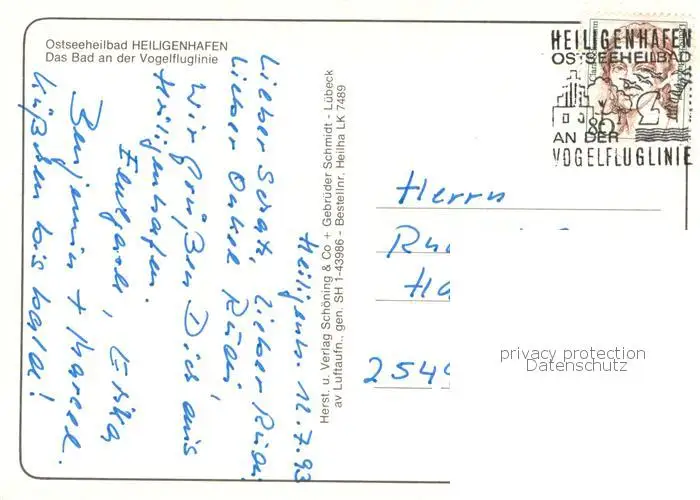 Ostseeheilbad HEILIGENHAFEN
Das Bad an der Vogelfluglinie
Heiligenh. 12.7.93
Lieber Schatz, lieber Rüdi
Lieber Onkel Rüdi,
Wir grüßen Dich aus
Heiligenhafen.
Erika,
Benjamin + Marcel.
Küßchen bis bald!
Herst. u. Verlag Schöning & Co + Gebrüder Schmidt - Lübeck
av Luftaufn., gen. SH 1-43986 - Bestellnr. Heilha LK 7489
HEILIGENHAFEN
OSTSEEHEILBAD
AN DER
VOGELFLUGLINIE
80
Herrn
privacy protection
Datenschutz